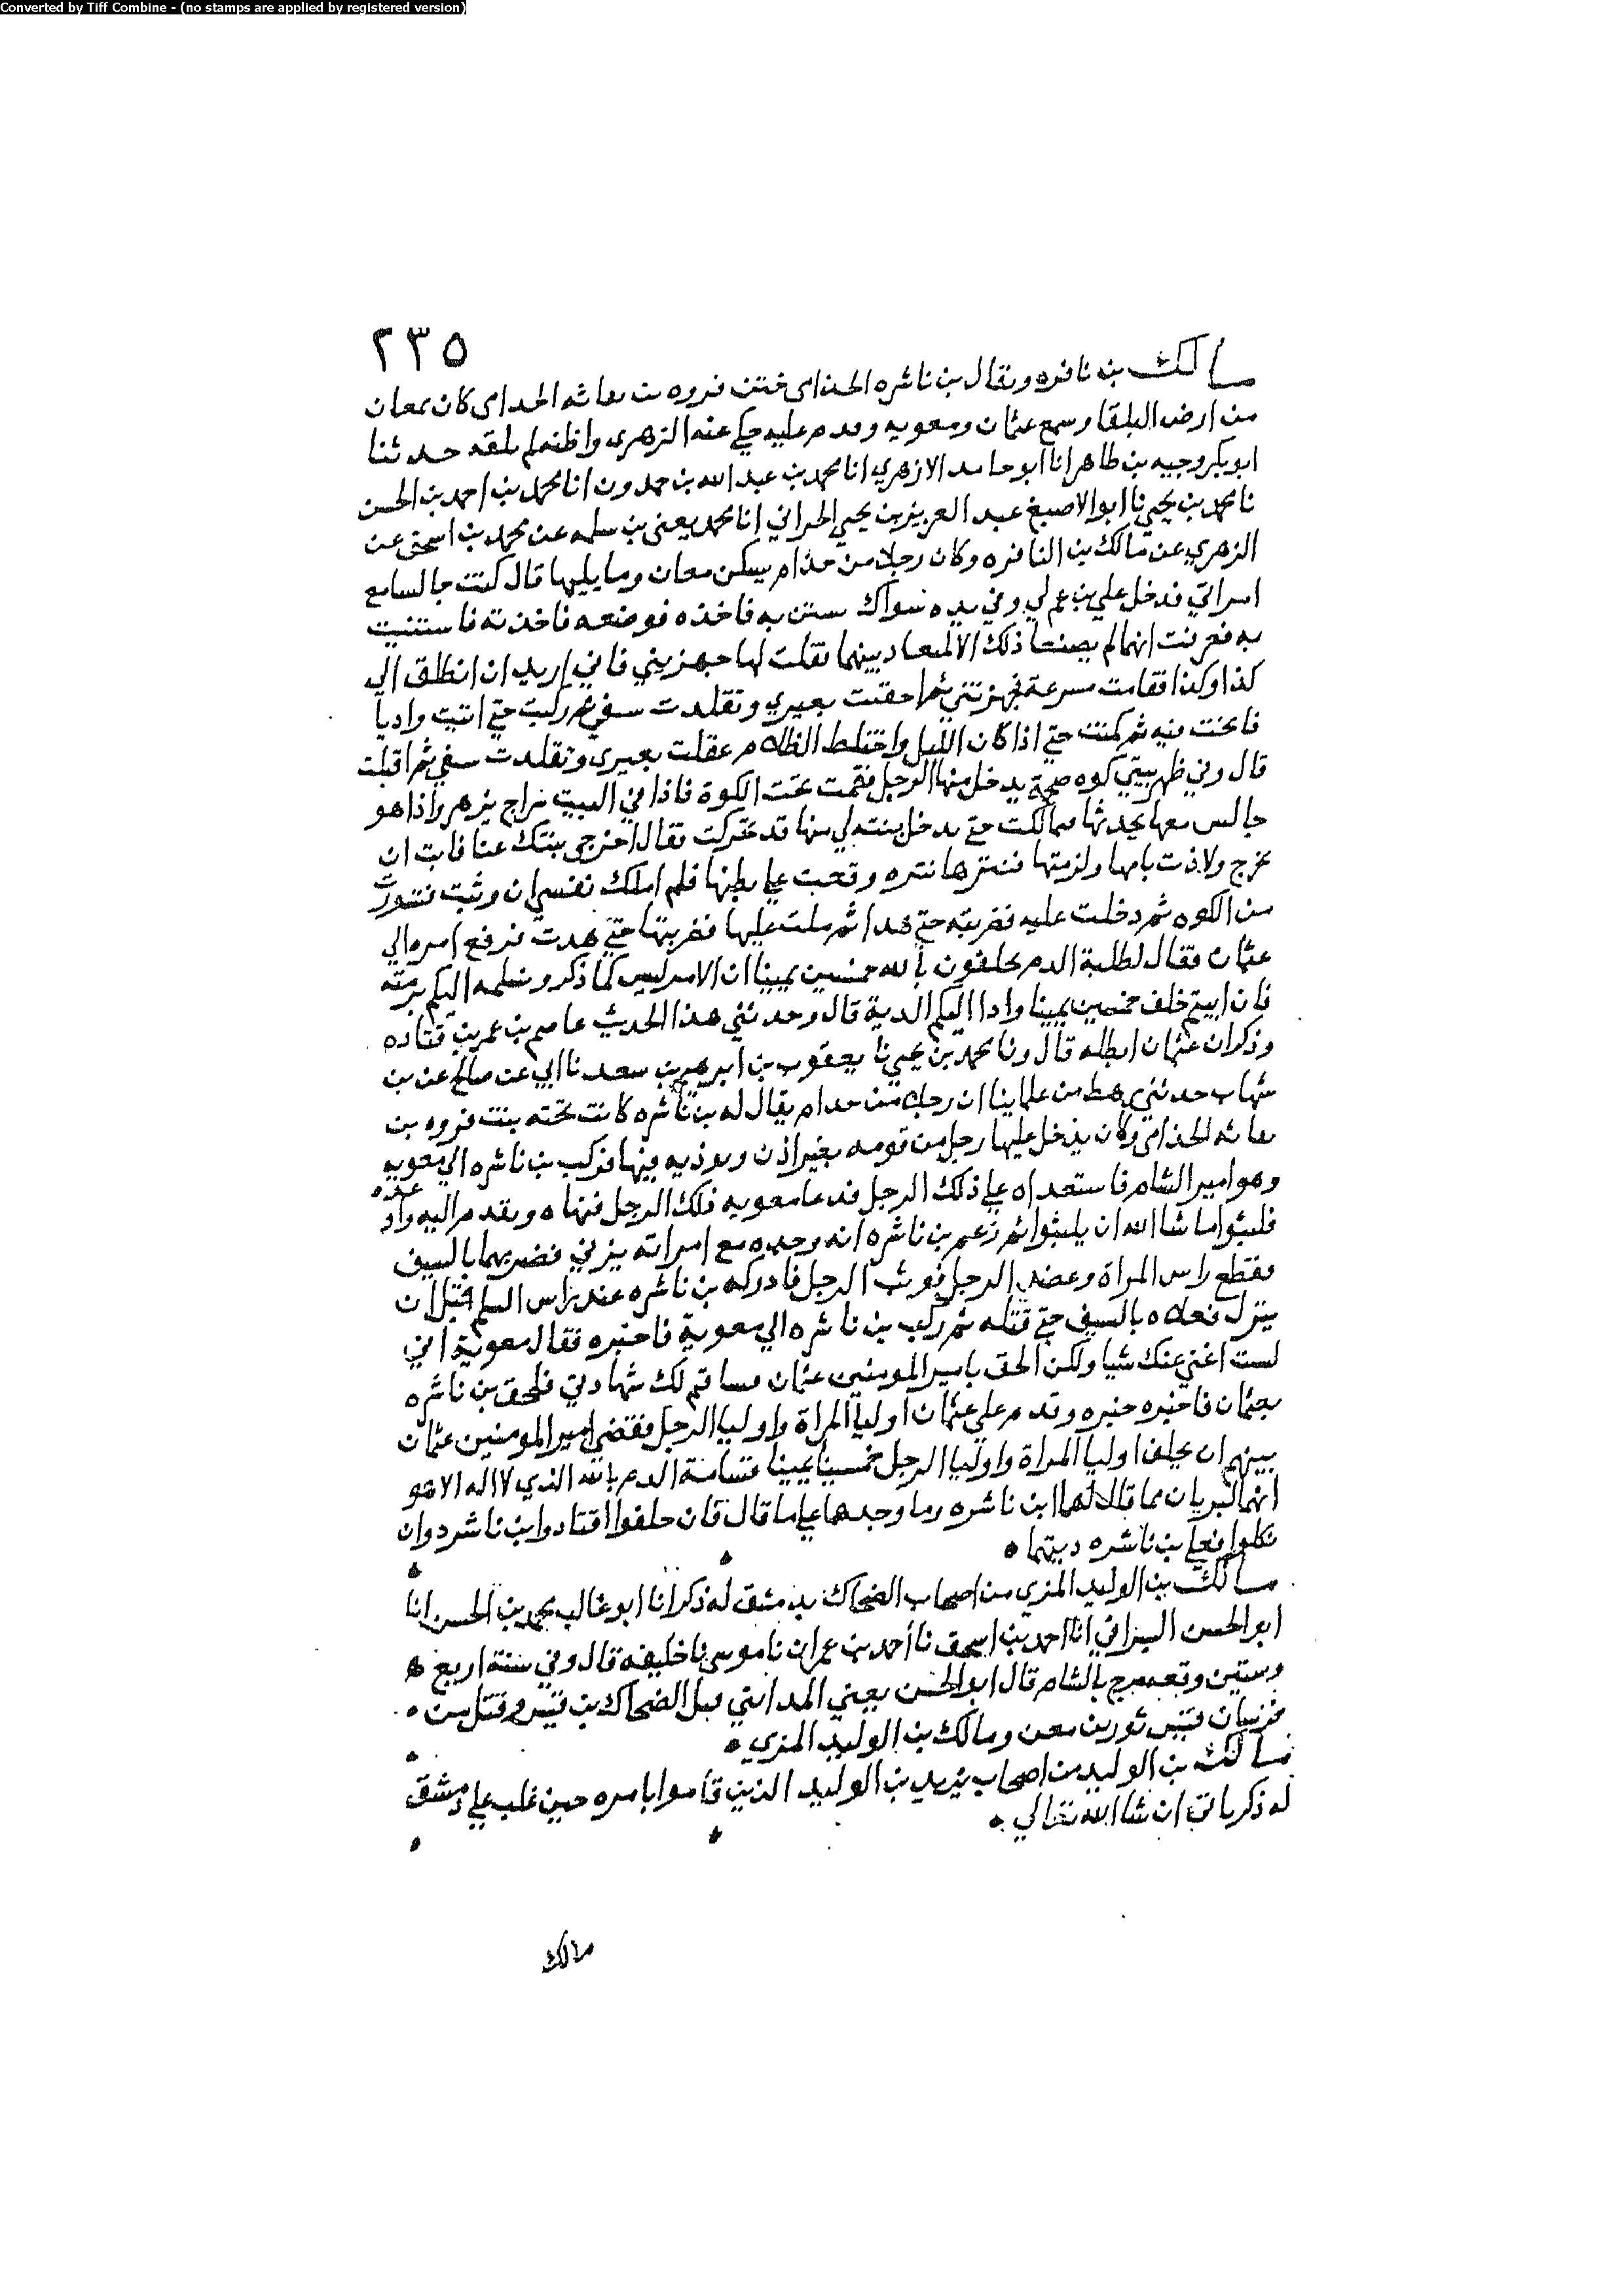 Converted by Tiff Combine - (no stamps are applied by registered version)
٢٣٥
مالك بن نافره ويقال بن ناشره الجذامى ختن فروه بن نفاثه الجدامى كان بمعان
من ارض البلقا وسمع عثمان ومعويه وقدم عليه حكى عنه الزهرى واظنه لم يلقه حدثنا
ابو بكر وجيه بن طاهر انا ابو حامد الازهري انا محمد بن عبد الله بن حمدون انا محمد بن احمد بن الحسن
نا محمد بن يحيي نا ابو الاصبغ عبد العزيز بن يحيي الحراني انا محمد يعنى بن سلمه عن محمد بن اسحق عن
الزهري عن مالك بن النافره وكان رجلا من جذام يسكن معان وما يليها قال كنت جالسا مع
امراتي فدخل علي بن عم لي وفي يده سواك يستن به فاخذه فوضعه فاخذته فاستنيت
به فعرفت انهما لم يصنعا ذلك الا لميعاد بينهما فقلت لها جهزيني فاني اريد ان انطلق الى
كذا وكذا فقامت مسرعة فجهزتني ثم احقبت بعيري وتقلدت سيفي ثم ركبت حتي اتيت واديا
فانخت فيه ثم كمنت حتي اذا كان الليل واختلط الظلام عقلت بعيرى وتقلدت سيفي ثم اقبلت
قال وفي ظهر بيتي كوه يدخل منها الرجل فقمت تحت الكوة فاذا في البيت سراج يزهر واذا هو
جالس معها يحدثها فما لكت حتى يدخل بنته لي منها قد تحركت فقال اخرجى بنتك عنا فابت ان
تخرج ولاذت بامها ولزمتها فنترها نتره وقعت على بطنها فلم املك نفسي ان وثبت فتسورت
من الكوه ثم دخلت عليه فضربته حتى هدا ثم ملت عليها فضربتها حتي هدت فرفع امره الي
عثمان فقال لطلبة الدم تحلفون بالله خمسين يمينا ان الامر ليس كما ذكر ونسلمه اليكم برمته
فان ابيتم حلف خمسين يمينا وادا اليكم الدية قال وحدثني هذا الحديث عاصم بن عمر بن قتاده
وذكر ان عثمان ابطله قال ونا محمد بن يحيي نا يعقوب بن ابرهيم بن سعد نا ابي عن صالح عن بن
شهاب حدثني رهط من علماينا ان رجلا من جدام يقال له بن ناشره كانت تحته بنت فروه بن
نفاثه الجذامى وكان يدخل عليها رجل من قومه بغير اذن ويوذيه فيها فركب بن ناشره الي معويه
وهو امير الشام فاستعداه علي ذلك الرجل فدعا معويه ذلك الرجل فنهاه وتقدم اليه واوعده
فلبثوا ما شا الله ان يلبثوا ثم زعم بن ناشره انه وجده مع امراته يزني فضربهما بالسيف
فقطع راس المراة وعضد الرجل فوثب الرجل فادركه بن ناشره عند راس السلم قبل ان
ينزل فعلاه بالسيف حتي قتله ثم ركب بن ناشره الي معوية فاخبره فقال معوية اني
لست اغني عنك شيا ولكن الحق بامير المومنين عثمان فساقيم لك شهادتي فلحق بن ناشره
بعثمان فاخبره خبره وقدم علي عثمان اوليا المراة واوليا الرجل فقضي امير المومنين عثمان
بينهم ان يحلف اوليا المراة واوليا الرجل خمسين يمينا قسامة الدم بالله الذي لا اله الا هو
انهما لبريان مما قال لهما ابن ناشره وما وجدهما علي ما قال فان حلفوا اقتادوا بن ناشره وان
نكلوا فعلي بن ناشره ديتهما
مالك بن الوليد المزي من اصحاب الضحاك بدمشق له ذكر انا ابو غالب محمد بن الحسن انا
ابو الحسن السيرافي انا احمد بن اسحق نا احمد بن عمران نا موسى نا خليفه قال وفي سنة اربع
وستين وقعة مرج بالشام قال ابو الحسن يعني المدايني قتل الضحاك بن قيس وقتل من
فرسان قيس ثور بن معن ومالك بن الوليد المزي
مالك بن الوليد من اصحاب يزيد بن الوليد الذين قاموا بامره حين غلب علي دمشق
له ذكر ياتي ان شا الله تعالي
مالك